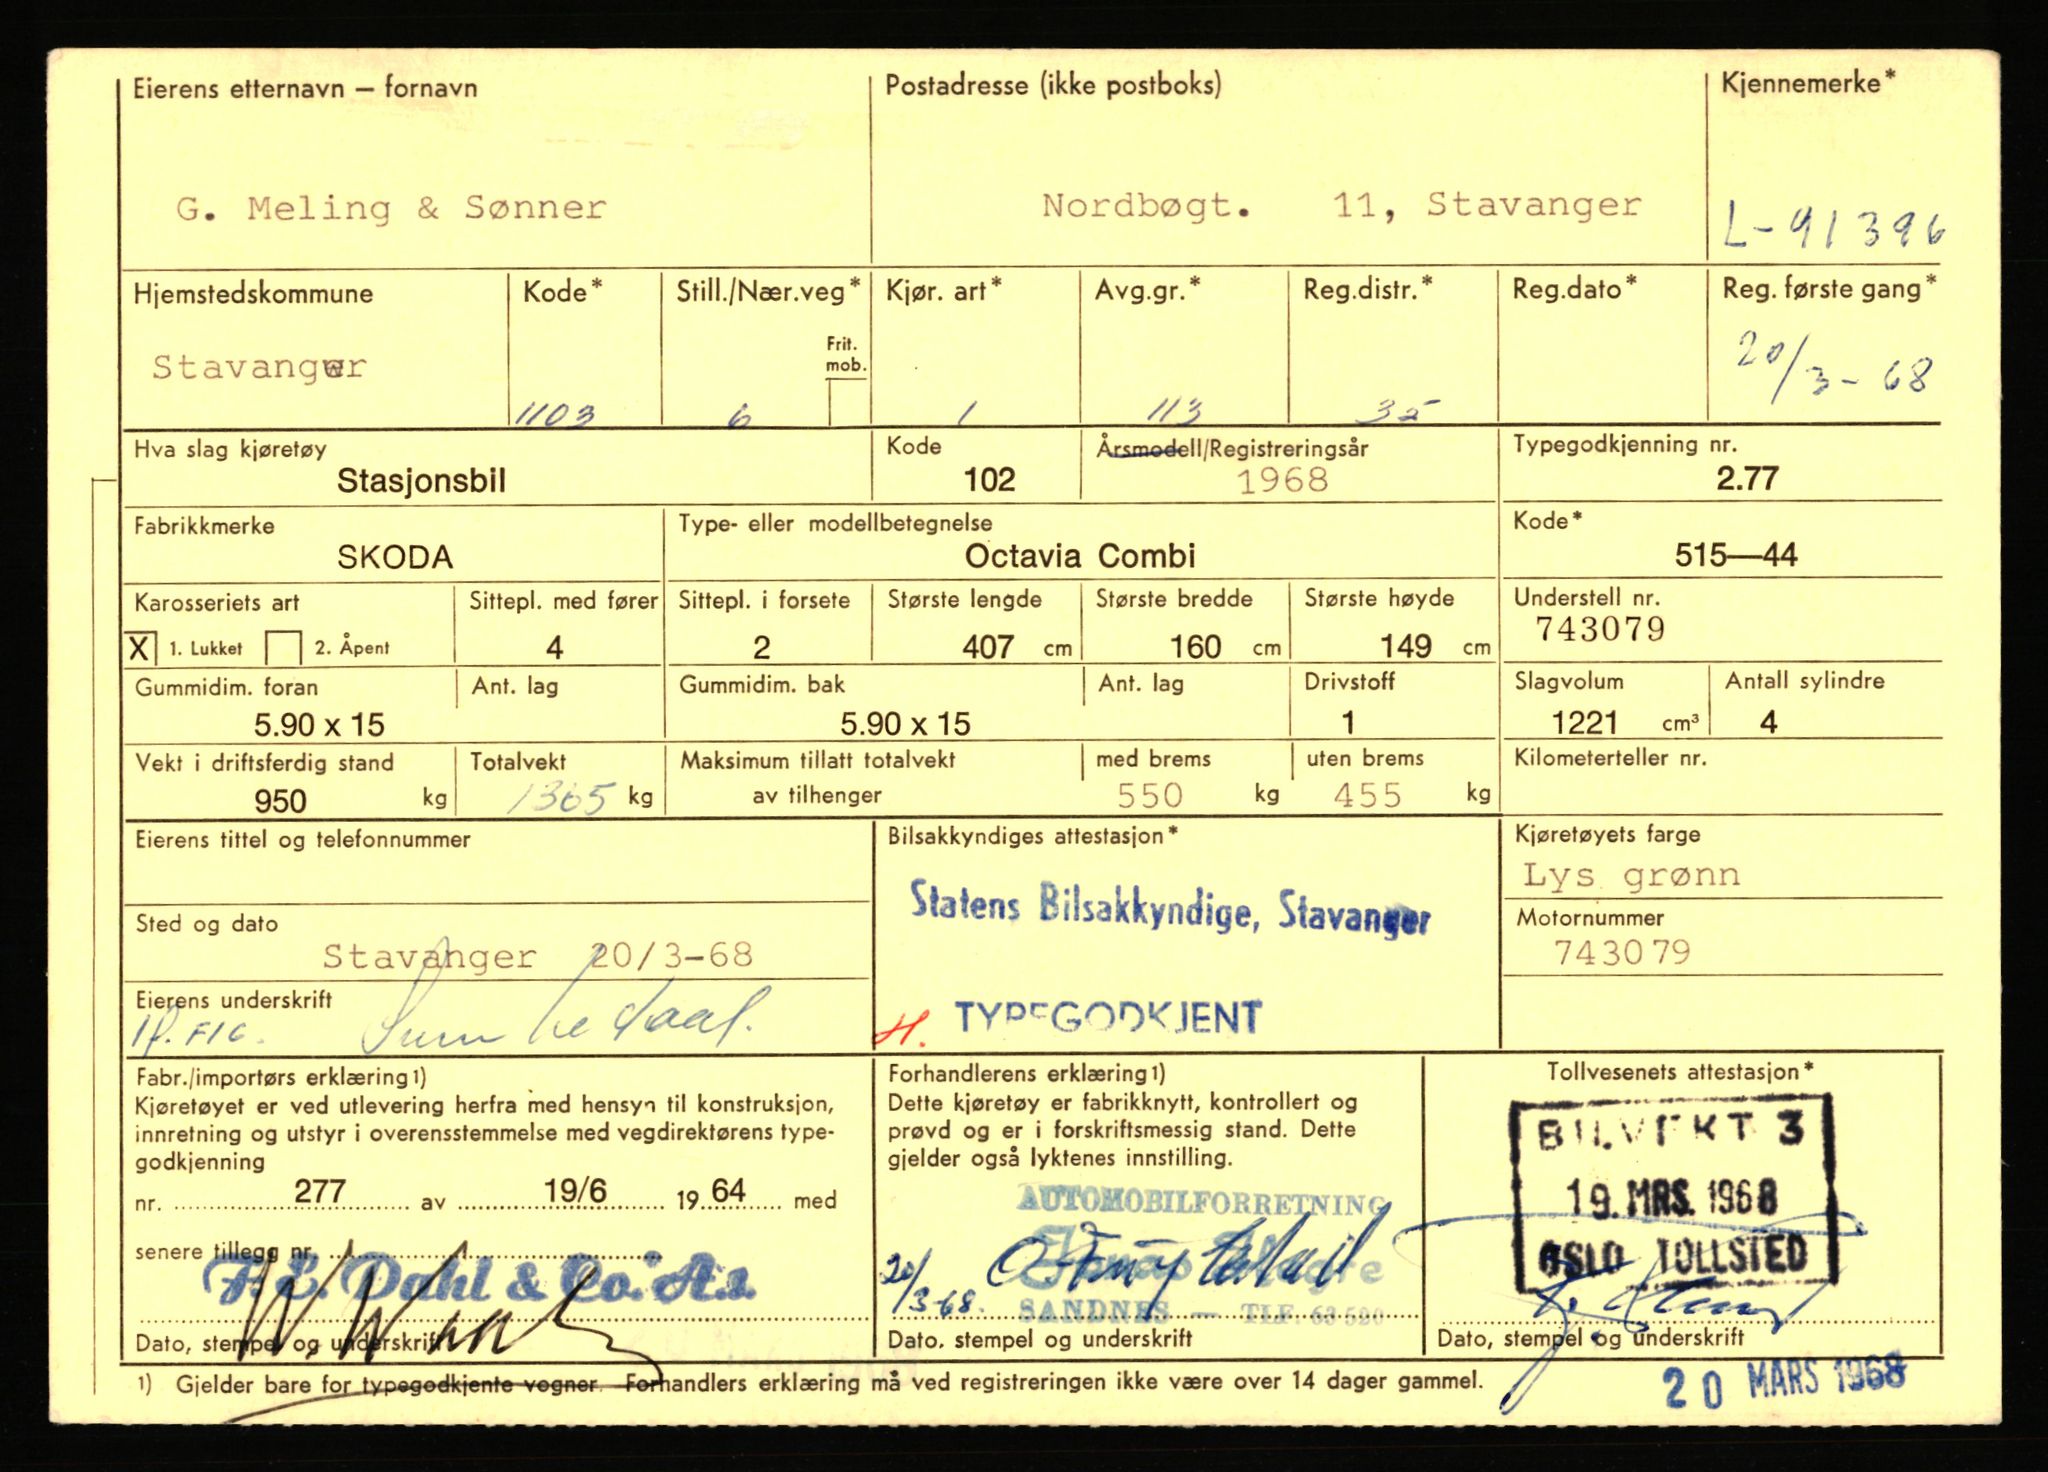 Eierens etternavn — fornavn
Postadresse (ikke postboks)
Kjennemerke*
G. Meling & Sønner
Nordbøgt. 11, Stavanger
L-91396
Hjemstedskommune
Kode*
Still./Nær.veg*
Kjør. art*
Avg.gr.*
Reg.distr.*
Reg.dato*
Reg. første gang*
Frit. mob.
Stavanger
1103
6
1
113
35
20/3-68
Hva slag kjøretøy
Kode
Årsmodell/Registreringsår
Typegodkjenning nr.
Stasjonsbil
102
1968
2.77
Fabrikkmerke
Type- eller modellbetegnelse
Kode*
SKODA
Octavia Combi
515—44
Karosseriets art
Sittepl. med fører
Sittepl. i forsete
Største lengde
Største bredde
Største høyde
Understell nr.
X 1. Lukket 2. Åpent
4
2
407 cm
160 cm
149 cm
743079
Gummidim. foran
Ant. lag
Gummidim. bak
Ant. lag
Drivstoff
Slagvolum
Antall sylindre
5.90 x 15
5.90 x 15
1
1221 cm³
4
Vekt i driftsferdig stand
Totalvekt
Maksimum tillatt totalvekt
med brems
uten brems
Kilometerteller nr.
950 kg
1365 kg
av tilhenger
550 kg
455 kg
Eierens tittel og telefonnummer
Bilsakkyndiges attestasjon*
Kjøretøyets farge
Lys grønn
Statens Bilsakkyndige, Stavanger
Sted og dato
Motornummer
Stavanger 20/3-68
743079
Eierens underskrift
H. TYPEGODKJENT
Fabr./importørs erklæring1)
Kjøretøyet er ved utlevering herfra med hensyn til konstruksjon,
innretning og utstyr i overensstemmelse med vegdirektørens type-
godkjenning
nr. 277 av 19/6 1964 med
senere tillegg nr.
F.E. Dahl & Co. A.s.
Dato, stempel og underskrift
Forhandlerens erklæring1)
Dette kjøretøy er fabrikknytt, kontrollert og
prøvd og er i forskriftsmessig stand. Dette
gjelder også lyktenes innstilling.
AUTOMOBILFORRETNING
20/3-68.
SANDNES — TLF. 63 520
Dato, stempel og underskrift
Tollvesenets attestasjon*
BILVEKT 3
19. MRS. 1968
OSLO TOLLSTED
Dato, stempel og underskrift
1) Gjelder bare for typegodkjente vogner. Forhandlers erklæring må ved registreringen ikke være over 14 dager gammel.
20 MARS 1968